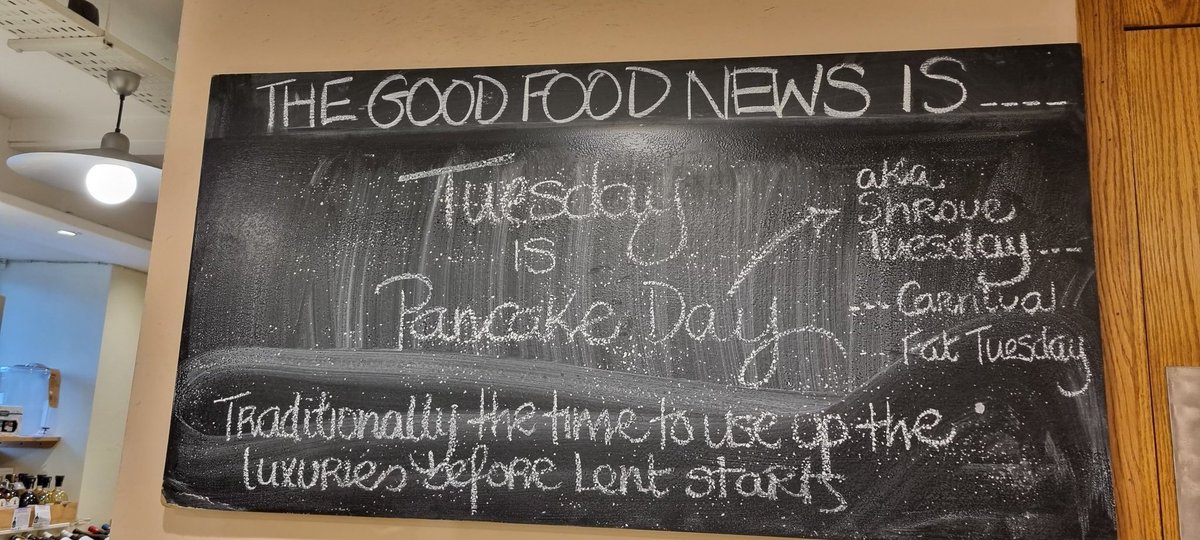 THE GOOD FOOD NEWS IS ----
Tuesday
IS
Pancake Day
aka
Shrove
Tuesday ---
--- Carnival
-- Fat Tuesday
Traditionally the time to use up the
luxuries before Lent starts